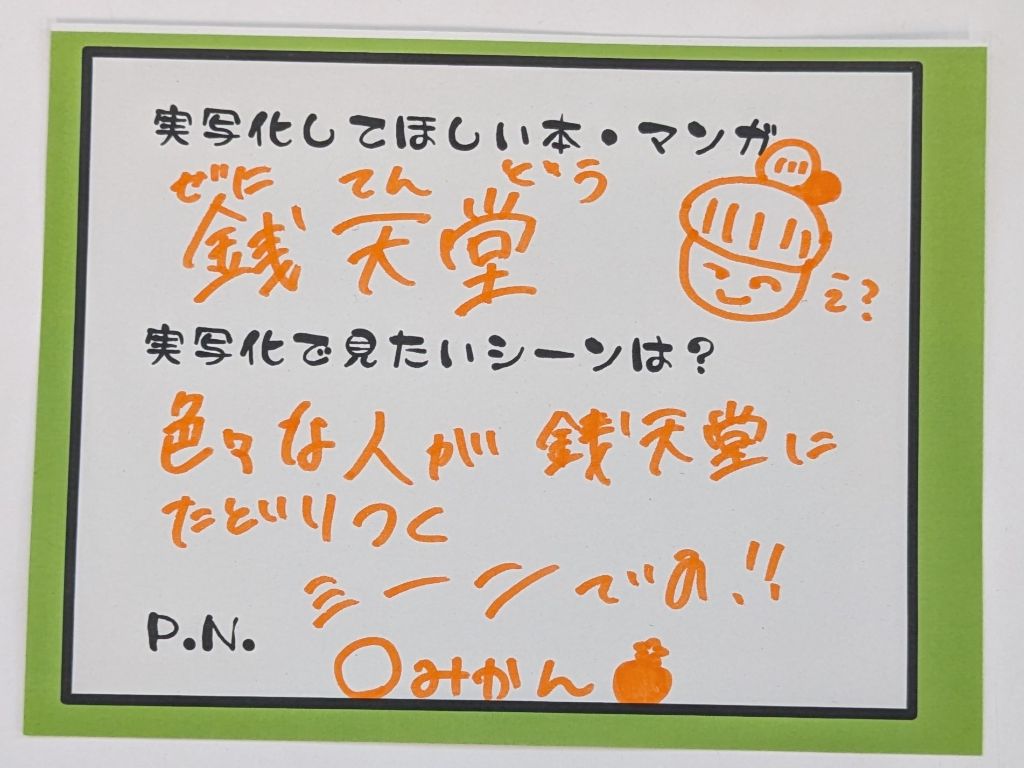 実写化してほしい本・マンガ
ぜに てん どう
銭天堂
え?
実写化で見たいシーンは?
色々な人が銭天堂に
たどりつく
シーンでの!!
P.N.
〇みかん